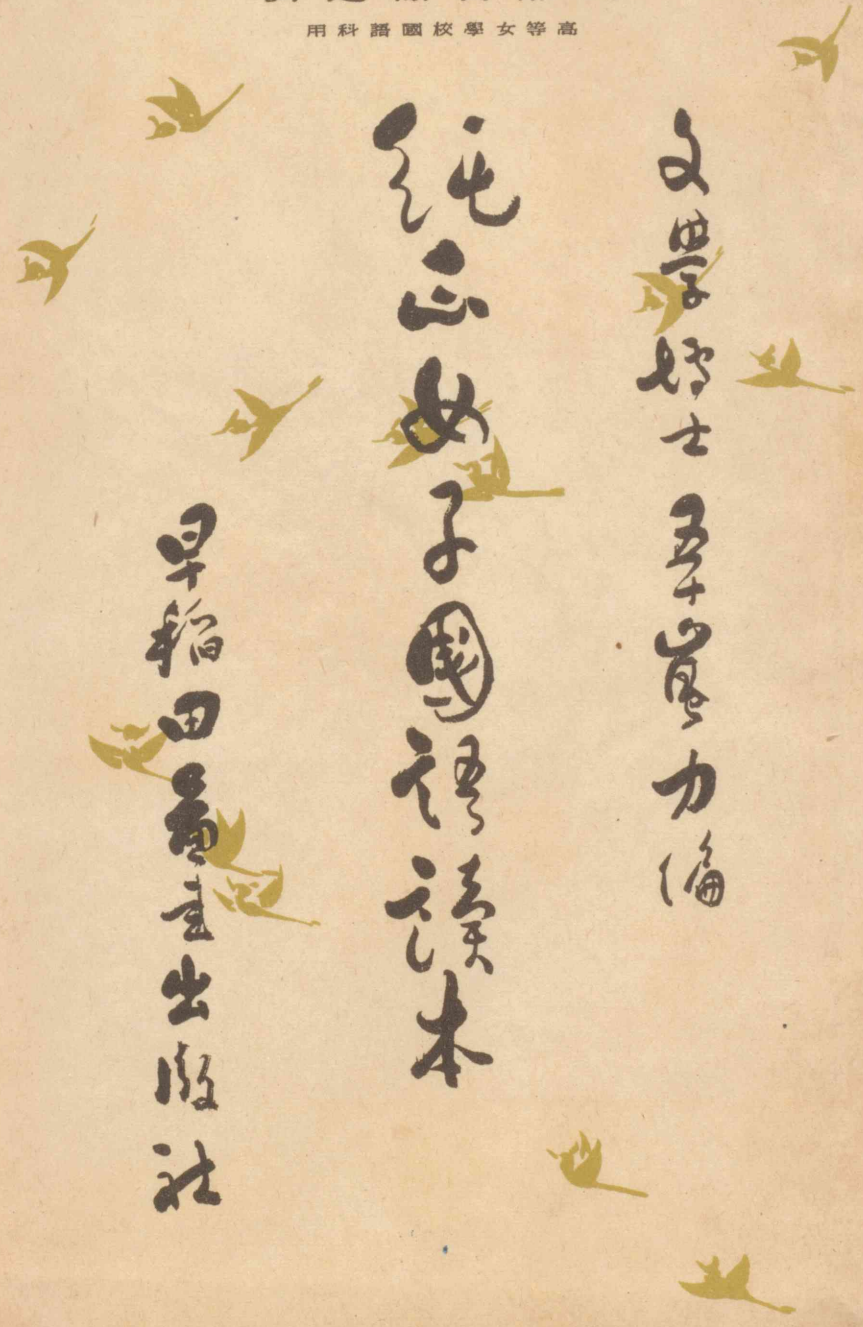 高等女學校國語科用
文學博士 五十嵐力編
純正女子國語讀本
早稻田圖書出版社